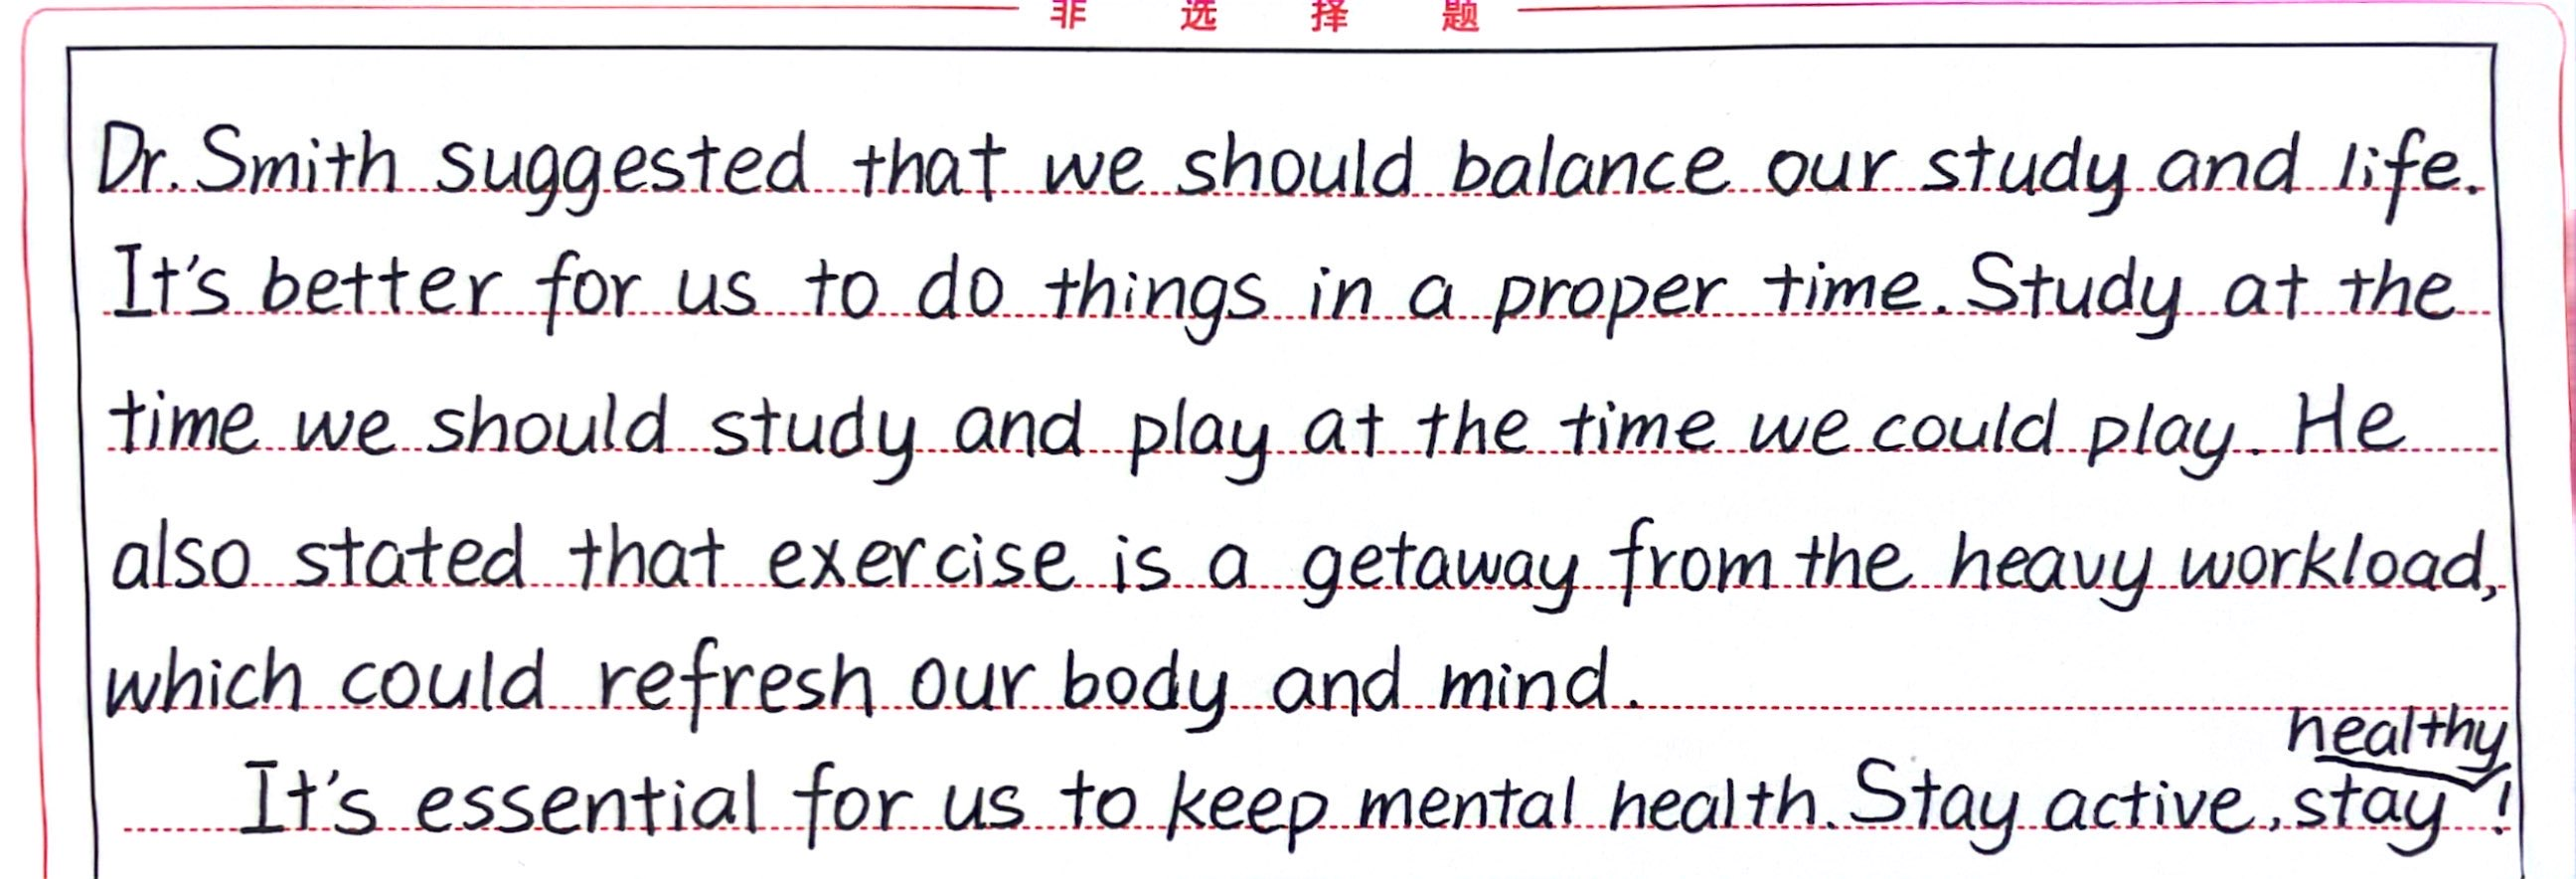 非 选 择 题
Dr. Smith suggested that we should balance our study and life.
It's better for us to do things in a proper time. Study at the
time we should study and play at the time we could play. He
also stated that exercise is a getaway from the heavy workload,
which could refresh our body and mind.
It's essential for us to keep mental health. Stay active, stay healthy!